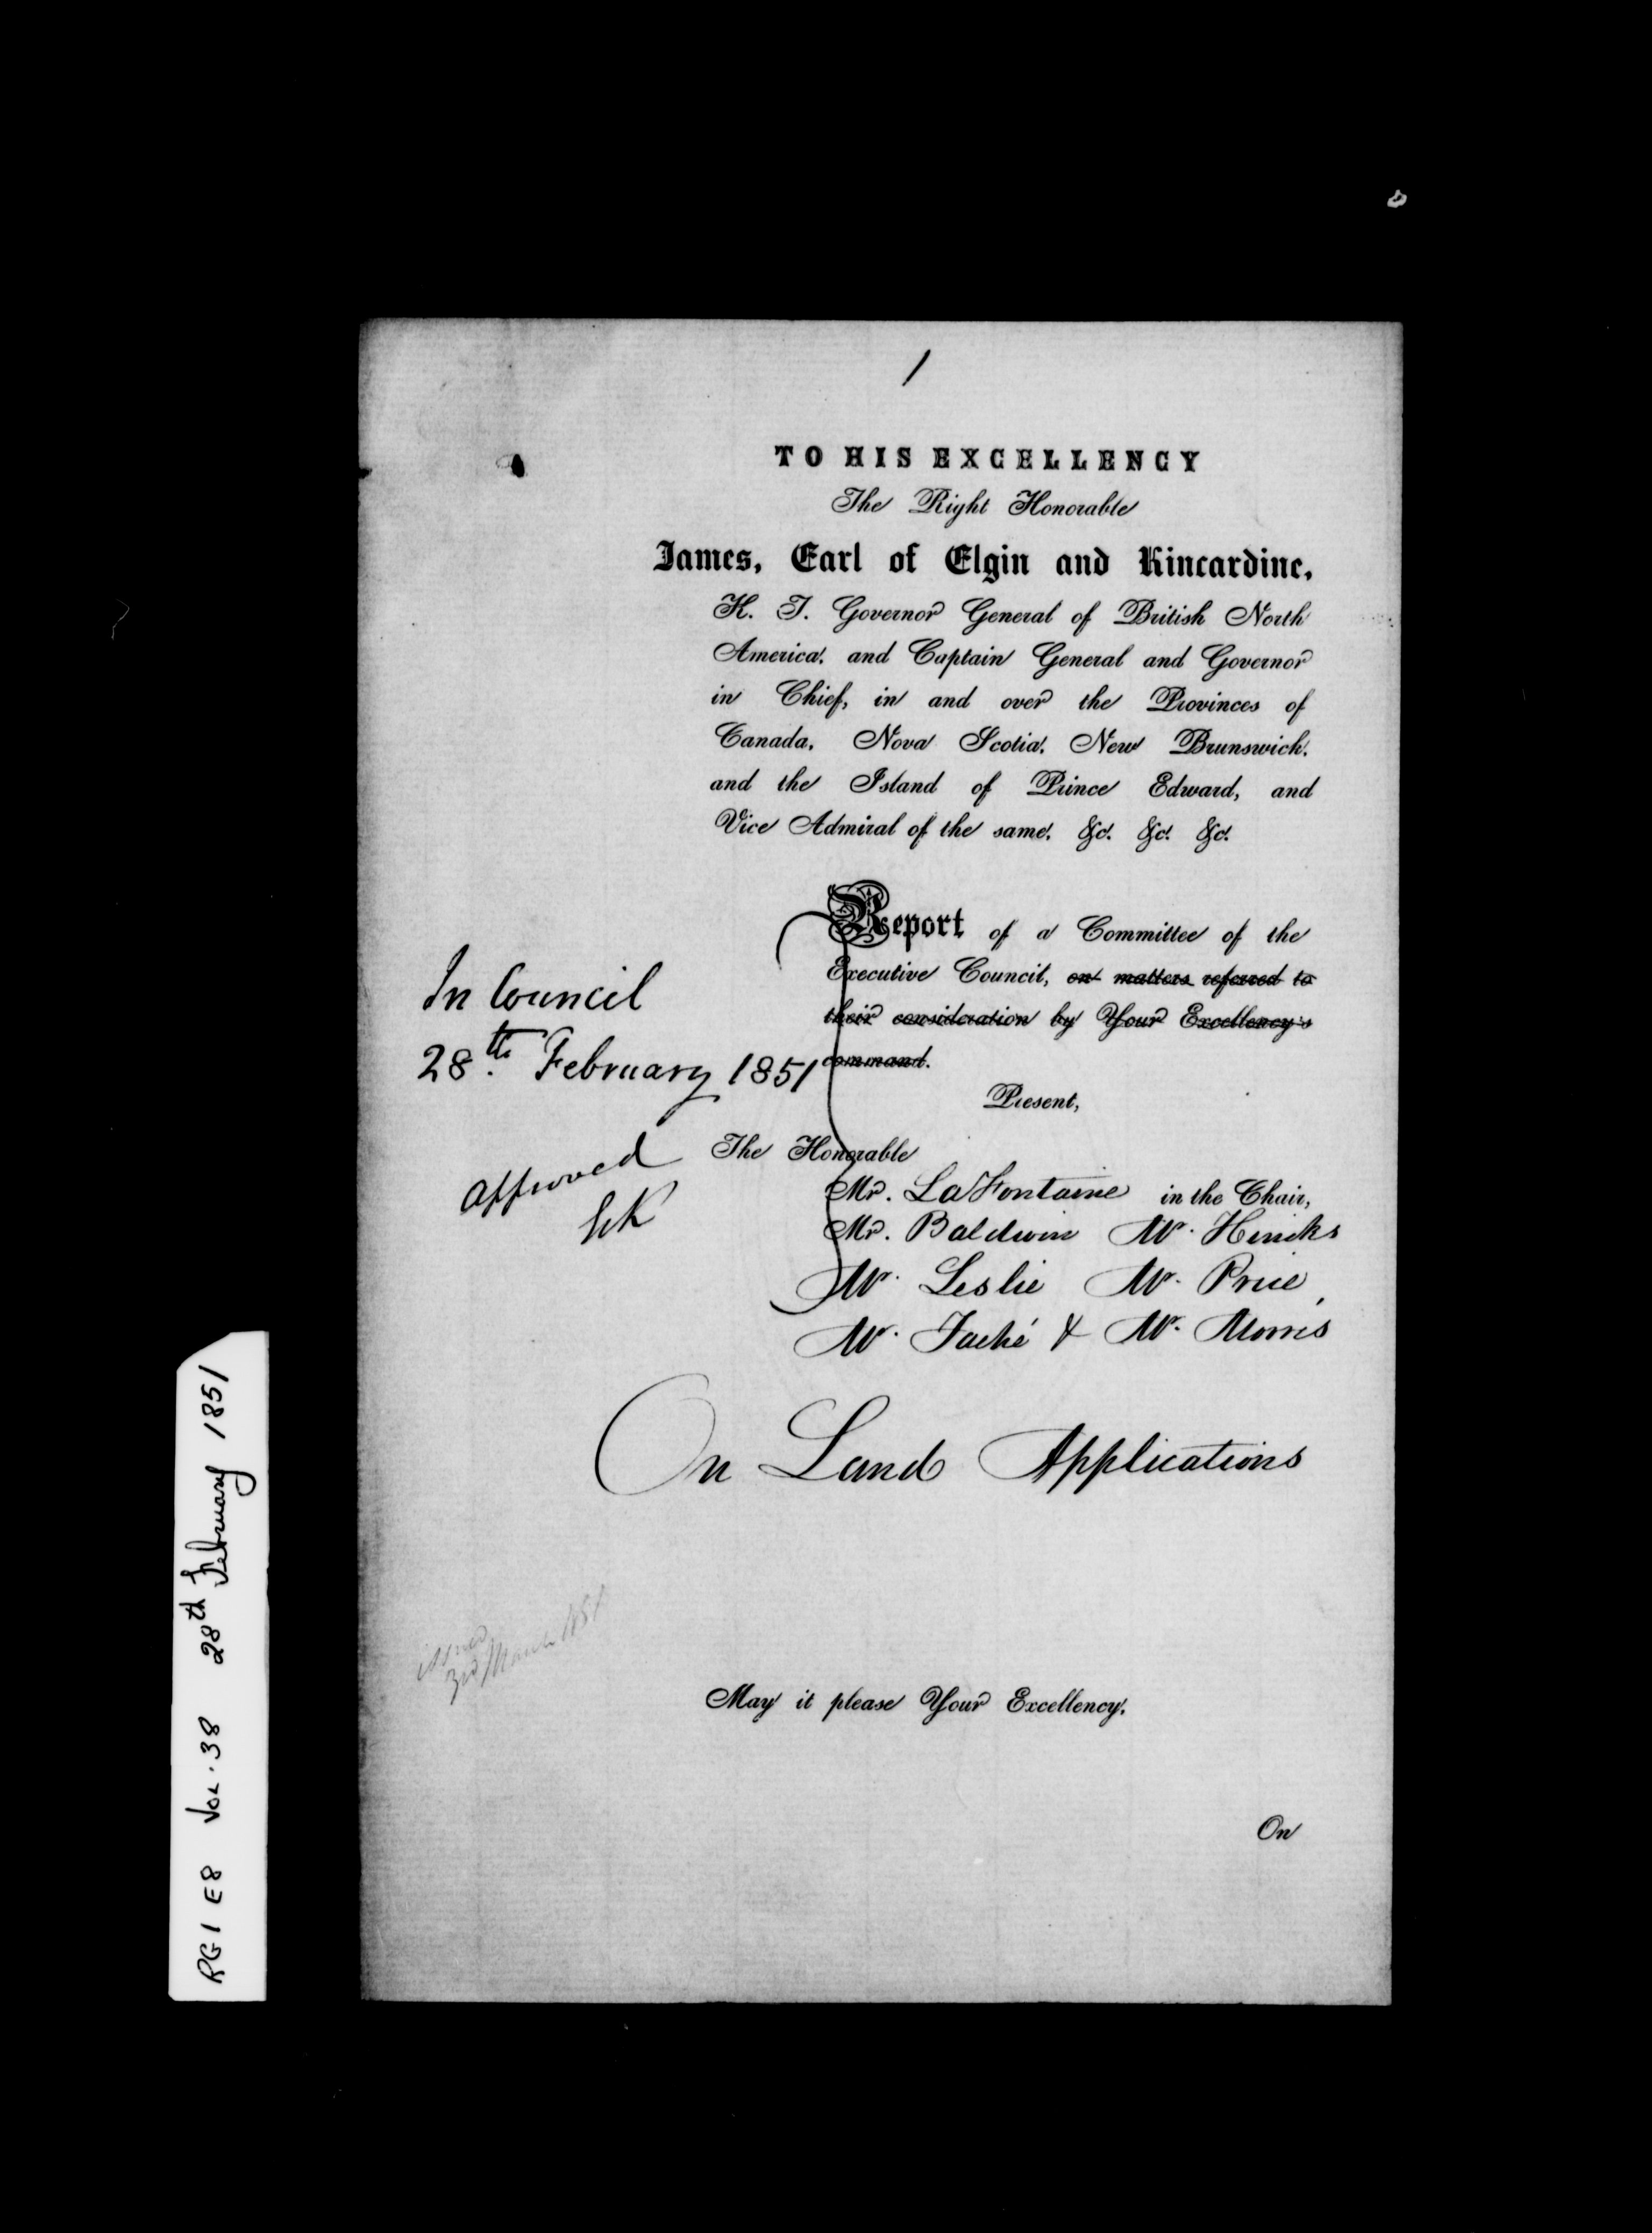 1
TO HIS EXCELLENCY
The Right Honorable
James, Earl of Elgin and Kincardine,
K. T. Governor General of British North
America, and Captain General and Governor
in Chief, in and over the Provinces of
Canada, Nova Scotia, New Brunswick,
and the Island of Prince Edward, and
Vice Admiral of the same. &c. &c. &c.
Report of a Committee of the
Executive Council, on matters referred to
their consideration by Your Excellency's
command.
In Council
28th. February 1851
Approved
E&K
Present,
The Honorable
Mr. LaFontaine in the Chair,
Mr. Baldwin Mr. Hincks
Mr. Leslie Mr. Price,
Mr. Taché & Mr. Morris
On Land Applications
issued
3rd March 1851
May it please Your Excellency,
On
RG1 E8 VOL. 38 28th February 1851